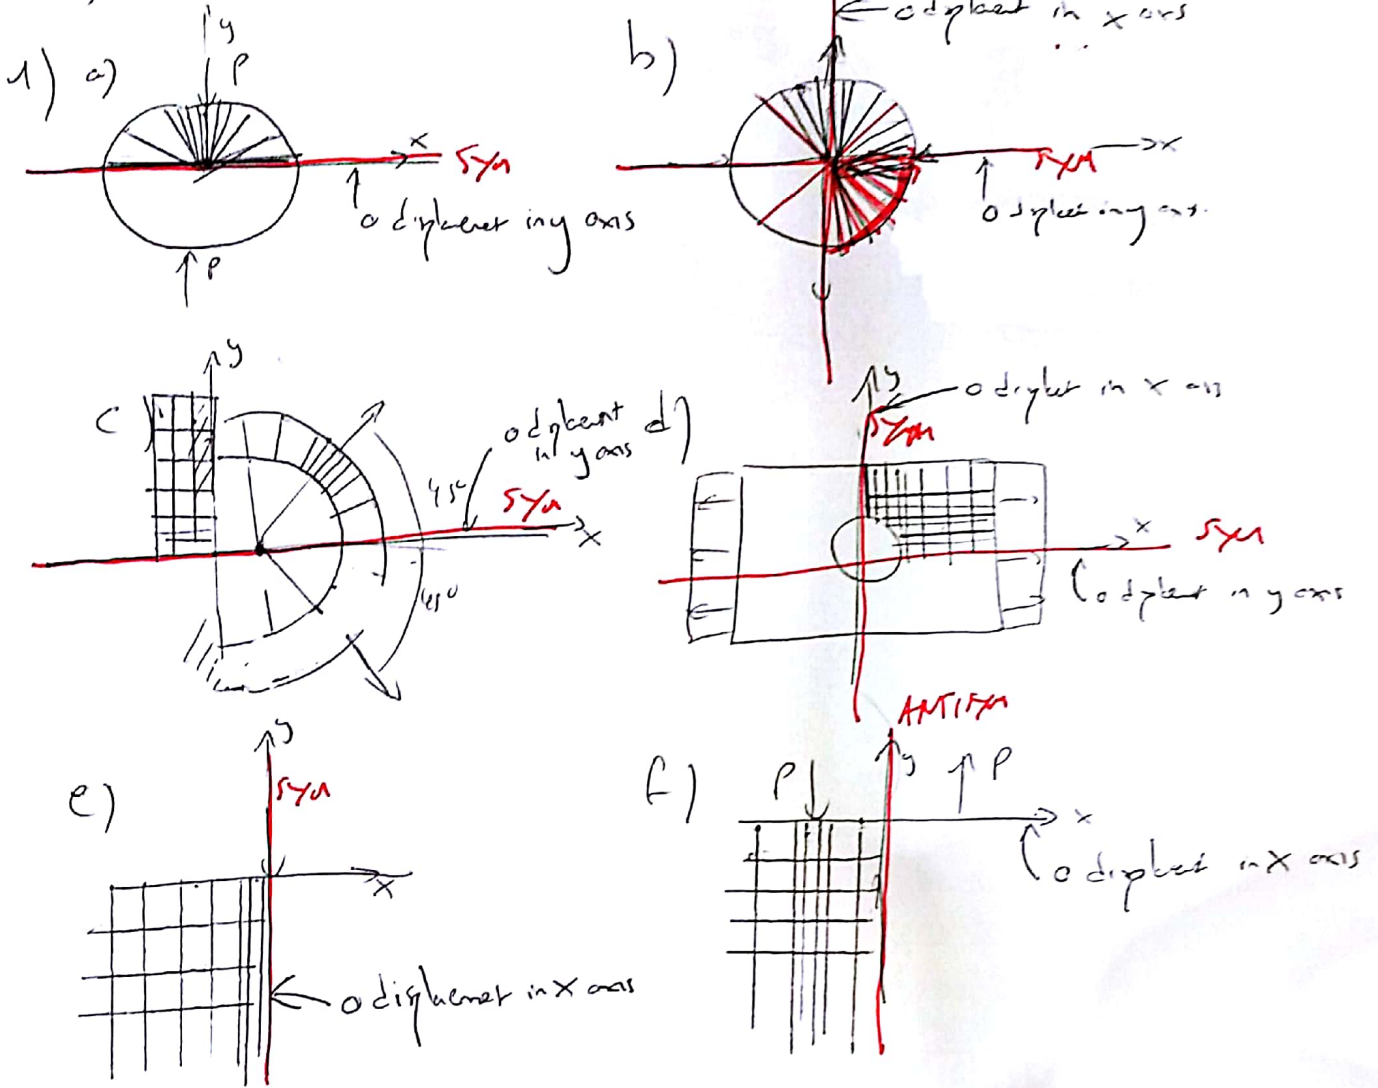 1) a)
y
P
x
SYM
0 displacement in y axis
P
b)
0 displacement in x axis
x
SYM
0 displacement in y axis.
c)
y
45°
45°
0 displacement
in y axis
SYM
x
d)
y
0 displacement in x axis
SYM
x
SYM
0 displacement in y axis
e)
y
SYM
x
0 displacement in x axis
f)
ANTISYM
P
y
P
x
0 displacement in x axis